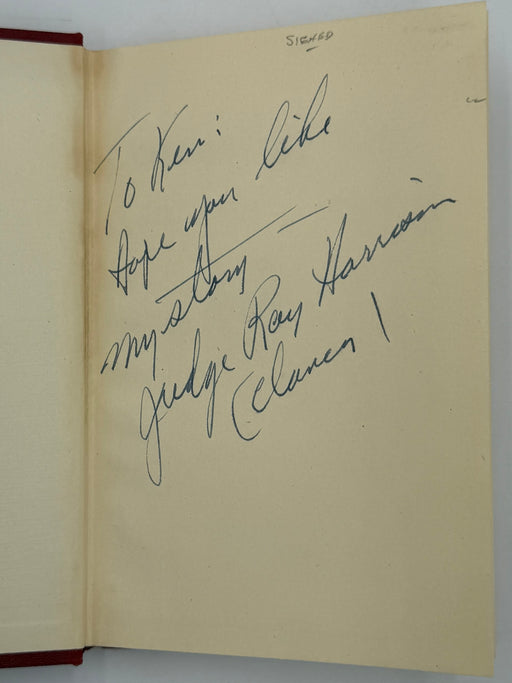 SIGNED
To Ken:
Hope you like
my story —
Judge Ray Harrison
(Clancy)